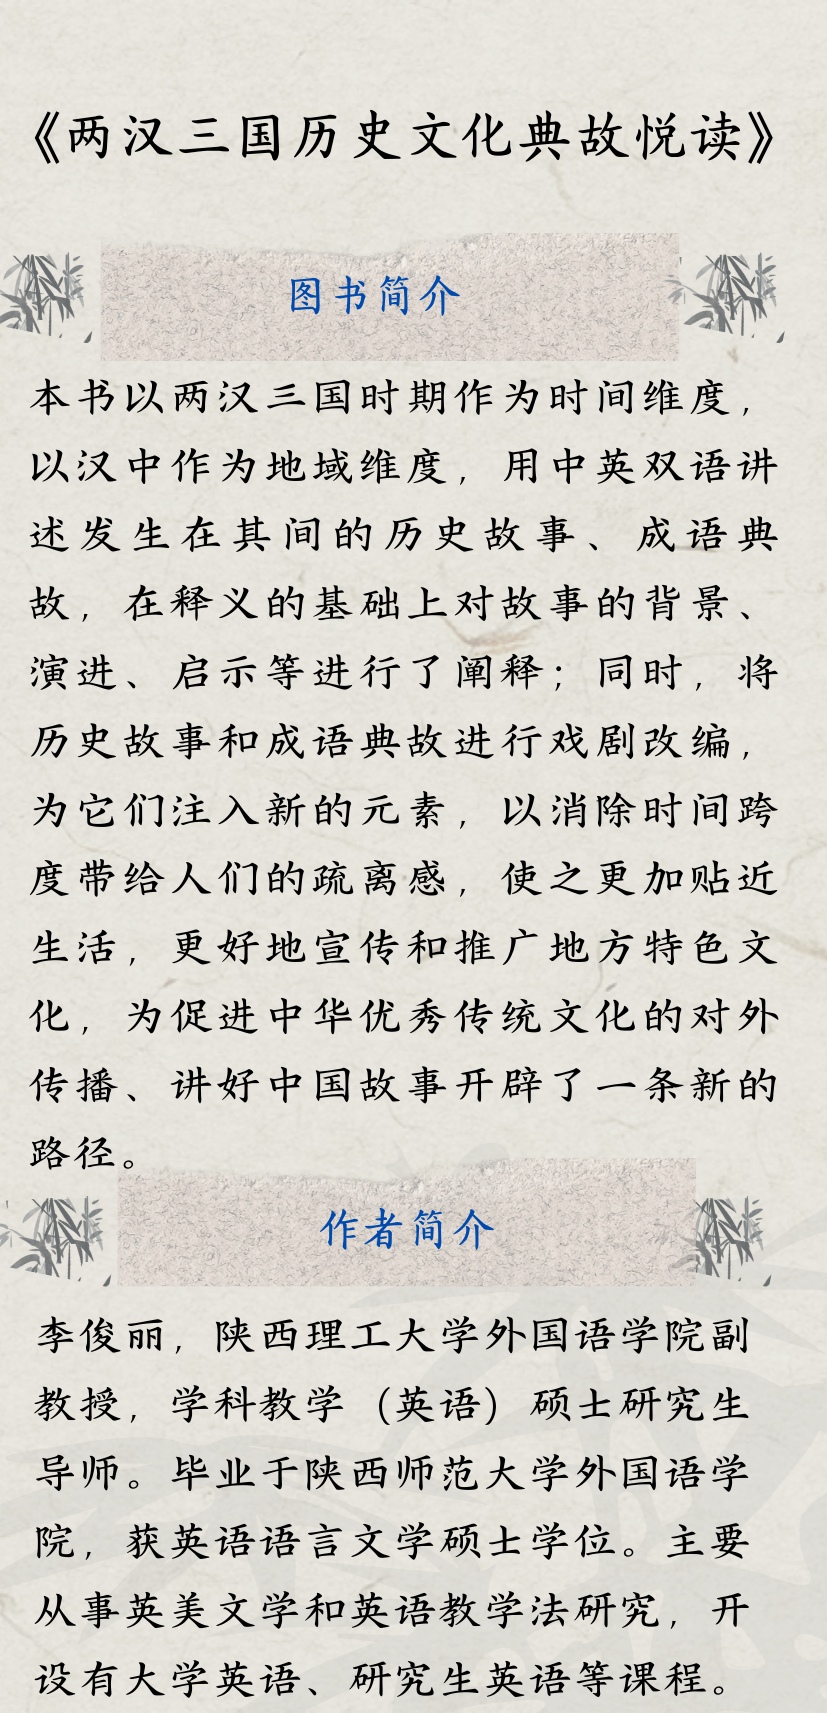 《两汉三国历史文化典故悦读》
图书简介
本书以两汉三国时期作为时间维度，
以汉中作为地域维度，用中英双语讲
述发生在其间的历史故事、成语典
故，在释义的基础上对故事的背景、
演进、启示等进行了阐释；同时，将
历史故事和成语典故进行戏剧改编，
为它们注入新的元素，以消除时间跨
度带给人们的疏离感，使之更加贴近
生活，更好地宣传和推广地方特色文
化，为促进中华优秀传统文化的对外
传播、讲好中国故事开辟了一条新的
路径。
作者简介
李俊丽，陕西理工大学外国语学院副
教授，学科教学（英语）硕士研究生
导师。毕业于陕西师范大学外国语学
院，获英语语言文学硕士学位。主要
从事英美文学和英语教学法研究，开
设有大学英语、研究生英语等课程。